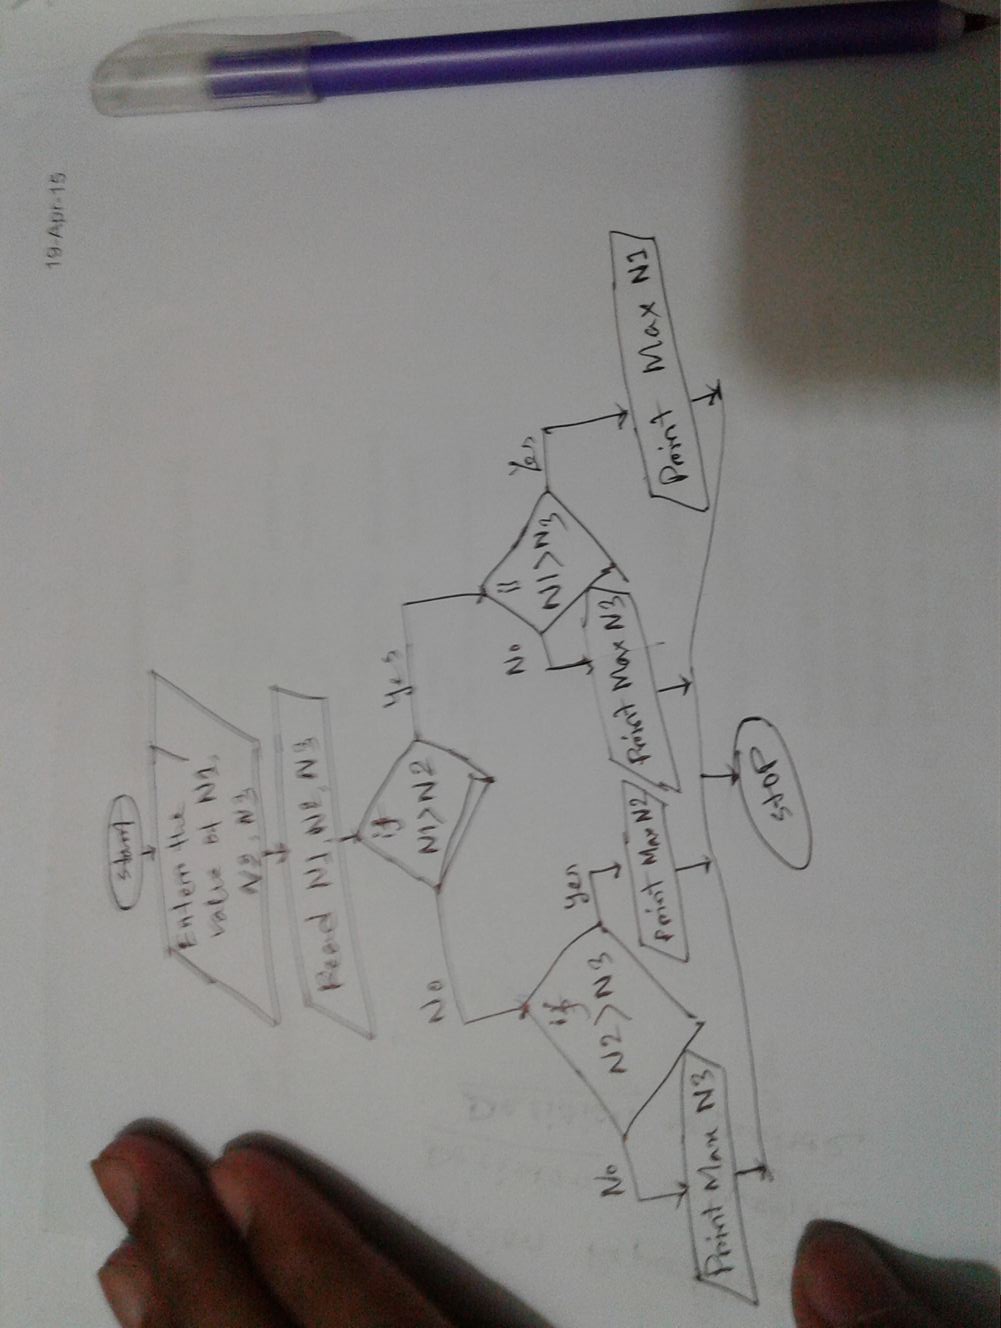 19-Apr-15
start
Enter the
value of N1,
N2, N3
Read N1, N2, N3
if
N1>N2
Yes
No
if
N1>N3
No
Yes
if
N2>N3
No
yes
Print Max N3
Print Max N2
Print Max N3
Print Max N1
STOP